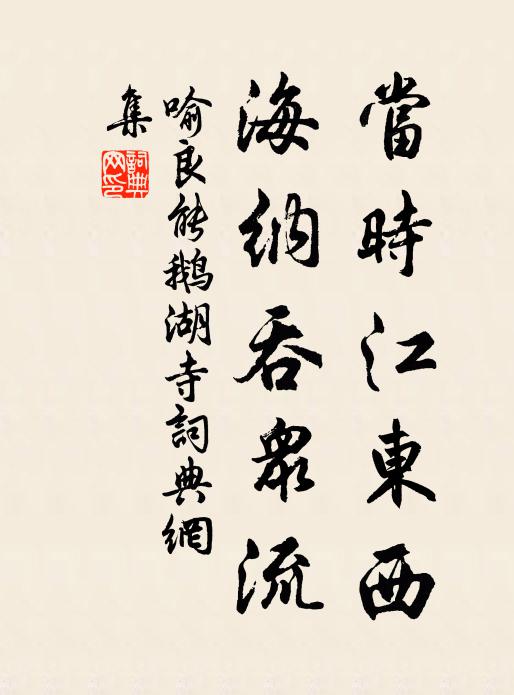 當時江東西
海納吞衆流
喻良能鵝湖寺詞典網
集
詞典
网印